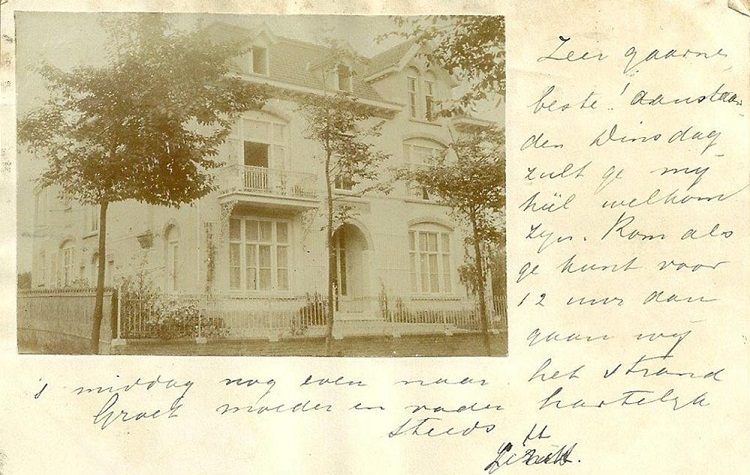 Zeer gaarne
beste! aanstaan
den Dinsdag
zult ge mij
hiel welkom
zijn. Kom als
ge kunt voor
12 uur dan
gaan wij
's middag nog even naar het strand
Groet moeder en vader hartelijk
steeds